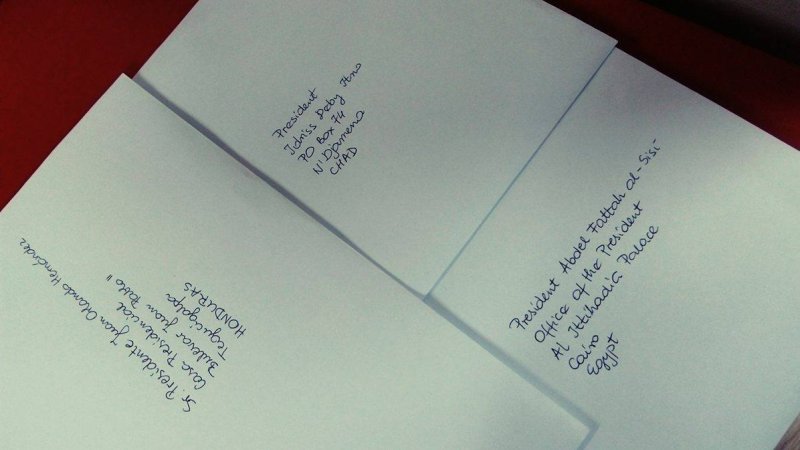 President
Idriss Deby Itno
PO Box 74
N'Djamena
CHAD
President Abdel Fattah al-Sisi
Office of the President
Al Ittihadia Palace
Cairo
Egypt
Sr. Presidente Juan Orlando Hernández
Casa Presidencial
Bulevar Juan Pablo II
Tegucigalpa
HONDURAS